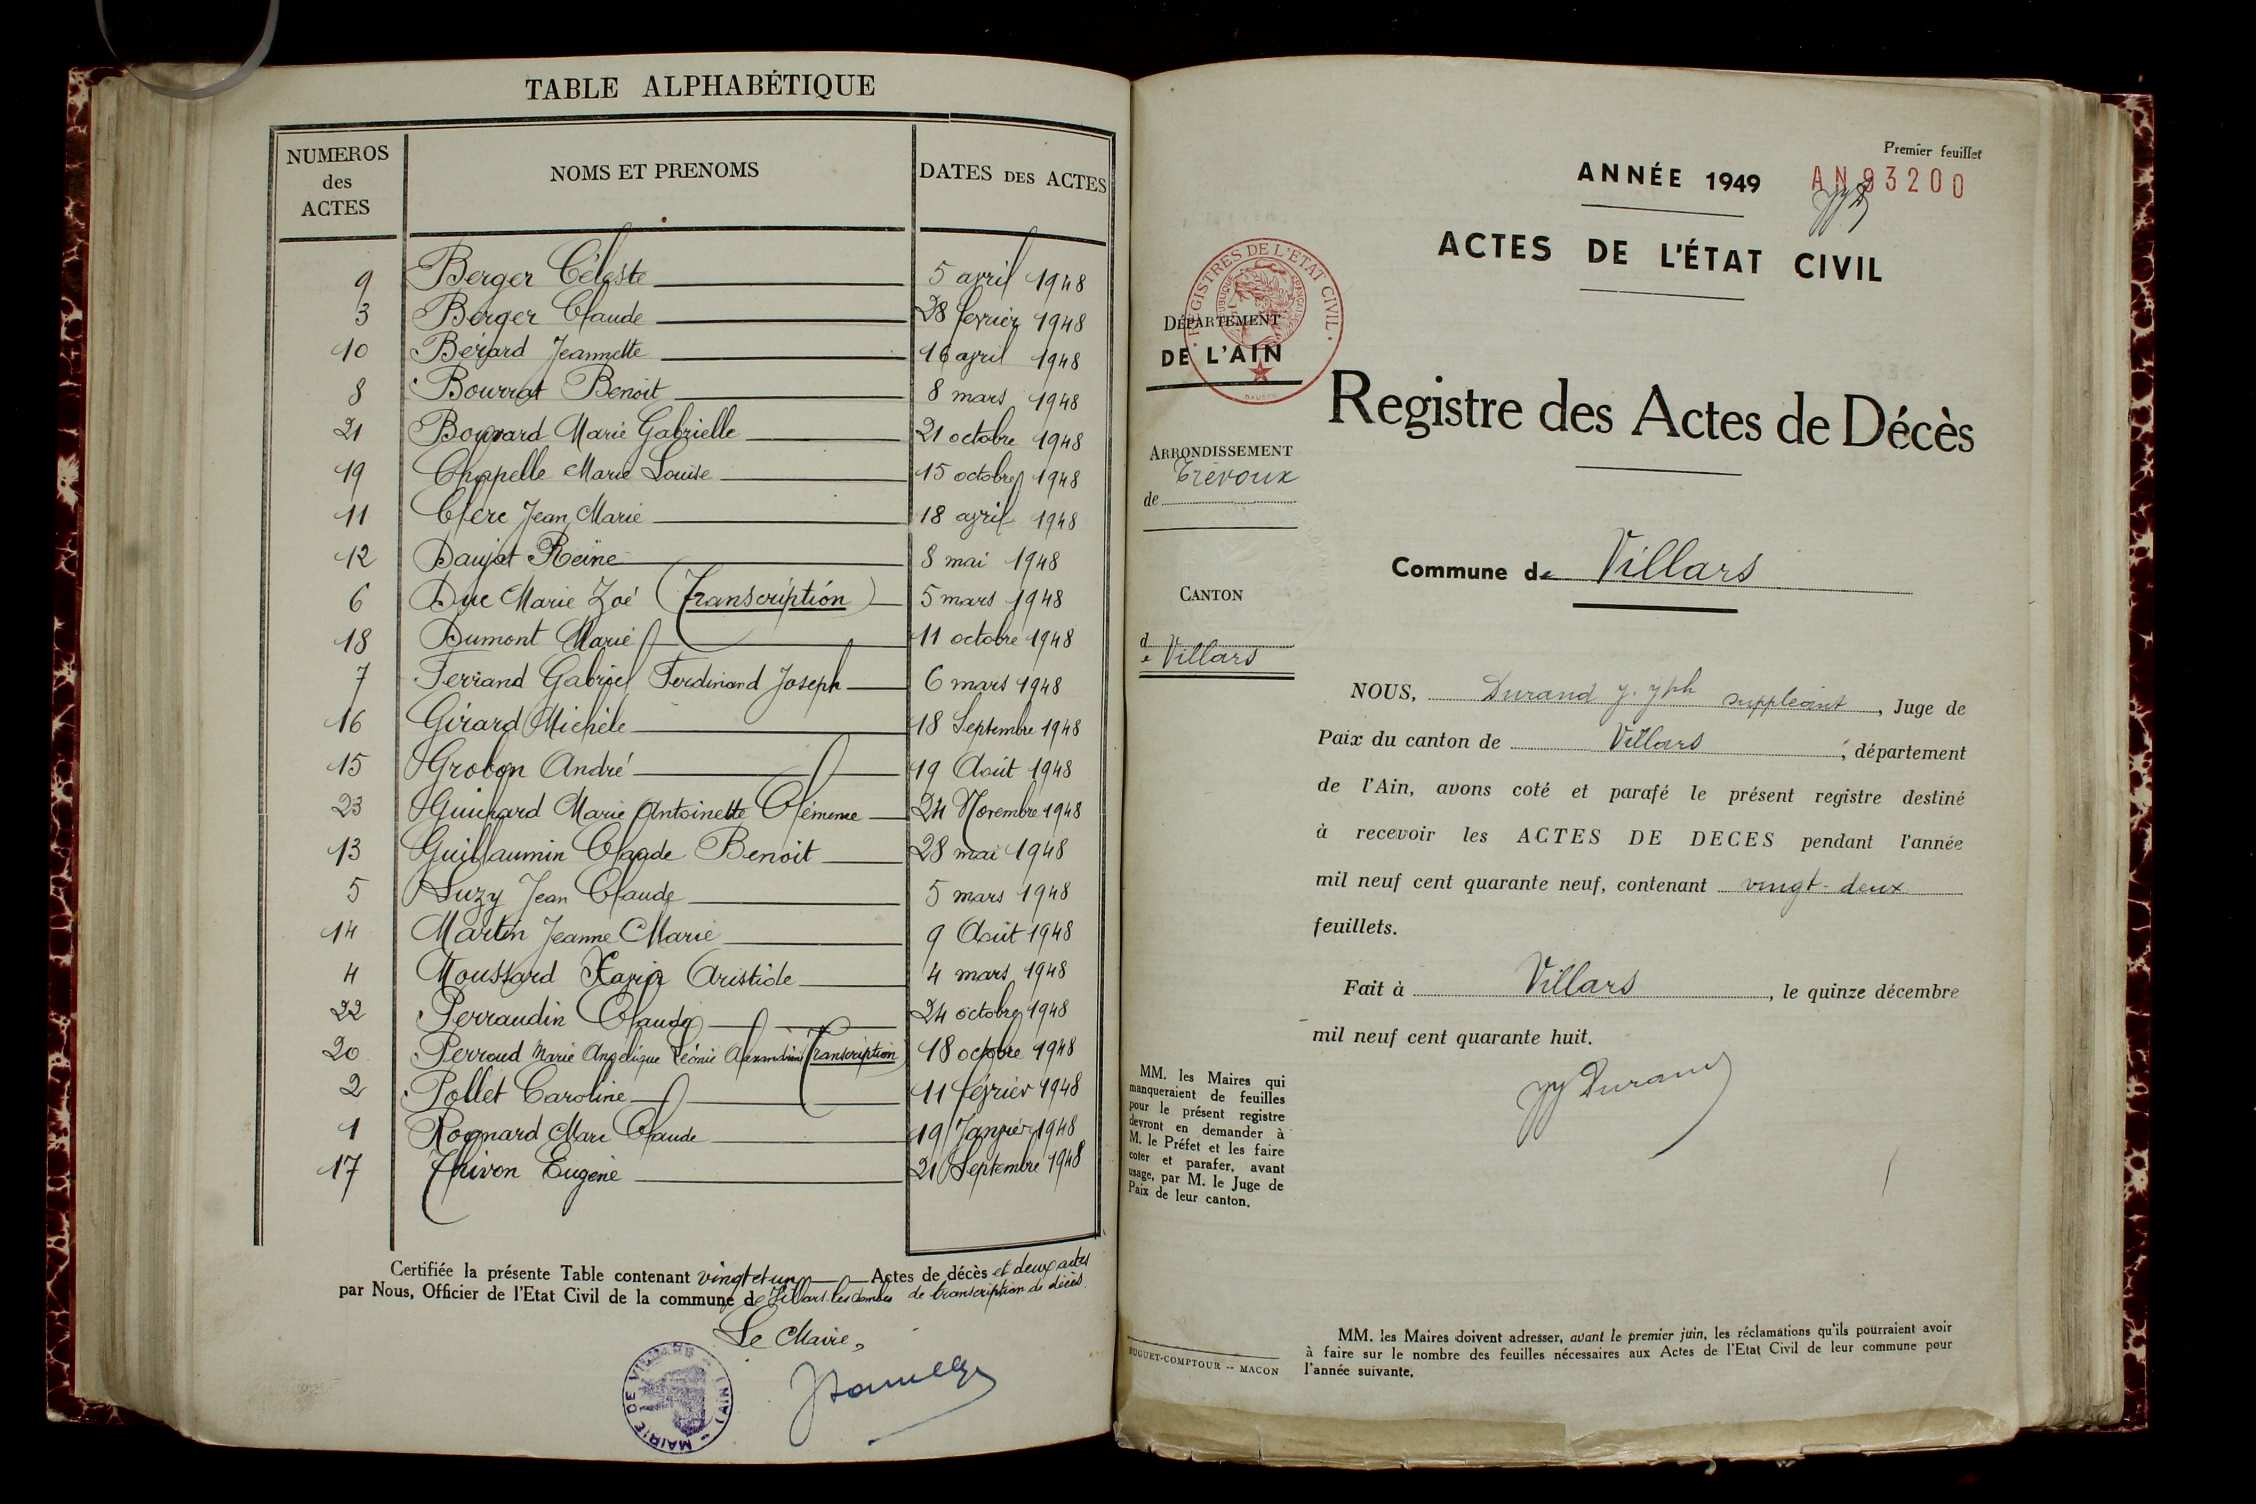 TABLE ALPHABÉTIQUE
NUMEROS des ACTES NOMS ET PRENOMS DATES DES ACTES
9 Berger Céleste 5 avril 1948
3 Berger Claude 28 février 1948
10 Berard Jeannette 16 avril 1948
8 Bourrat Benoit 8 mars 1948
21 Bouvard Marie Gabrielle 21 octobre 1948
19 Chapelle Marie Louise 15 octobre 1948
11 Clerc Jean Marie 18 avril 1948
12 Daujat Reine 8 mai 1948
6 Duc Marie Zoé (Transcription) 5 mars 1948
18 Dumont Marie 11 octobre 1948
7 Ferrand Gabriel Ferdinand Joseph 6 mars 1948
16 Girard Michèle 18 Septembre 1948
15 Grobon André 19 Août 1948
23 Guichard Marie Antoinette Clémence 24 Novembre 1948
13 Guillaumin Claude Benoit 28 mai 1948
5 Luzy Jean Claude 5 mars 1948
14 Martin Jeanne Marie 9 Août 1948
4 Moussard Xavier Aristide 4 mars 1948
22 Perraudin Claude 24 octobre 1948
20 Perroud Marie Angélique Léonie Alexandrine (Transcription) 18 octobre 1948
2 Pollet Caroline 11 février 1948
1 Rognard Marc Claude 19 Janvier 1948
17 Thivon Eugène 21 Septembre 1948
Certifiée la présente Table contenant vingt et un Actes de décès et deux actes
par Nous, Officier de l'Etat Civil de la commune de Villars les Dombes de transcription de décès.
Le Maire,
MAIRIE DE VILLARS (AIN)
Premier feuillet
ANNÉE 1949 AN 93200
ACTES DE L'ÉTAT CIVIL
REGISTRES DE L'ETAT CIVIL
DÉPARTEMENT
DE L'AIN
Registre des Actes de Décès
ARRONDISSEMENT
de Trévoux
Commune de Villars
CANTON
de Villars
NOUS, Durand J. Jph suppléant, Juge de
Paix du canton de Villars, département
de l'Ain, avons coté et parafé le présent registre destiné
à recevoir les ACTES DE DECES pendant l'année
mil neuf cent quarante neuf, contenant vingt-deux
feuillets.
Fait à Villars, le quinze décembre
mil neuf cent quarante huit.
JJ Durand
MM. les Maires qui
manqueraient de feuilles
pour le présent registre
devront en demander à
M. le Préfet et les faire
coter et parafer, avant
usage, par M. le Juge de
Paix de leur canton.
BUGUET-COMPTOUR -- MACON
MM. les Maires doivent adresser, avant le premier juin, les réclamations qu'ils pourraient avoir
à faire sur le nombre des feuilles nécessaires aux Actes de l'Etat Civil de leur commune pour
l'année suivante.